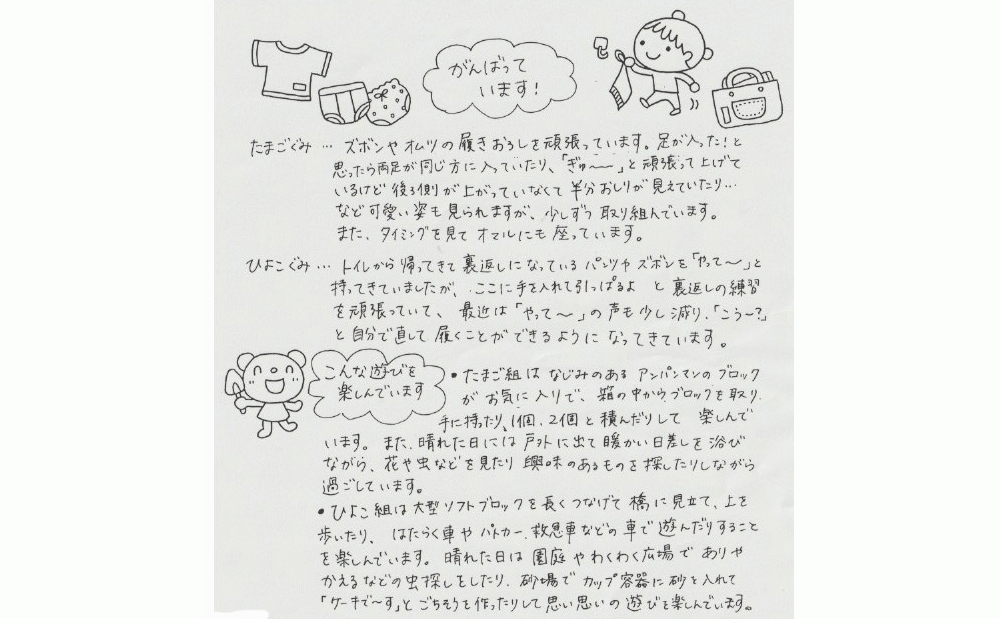 がんばって
います！
たまごぐみ … ズボンやオムツの履きおろしを頑張っています。足が入った！と
思ったら両足が同じ方に入っていたり、「ぎゅ〜」と頑張って上げて
いるけど後ろ側が上がっていなくて半分おしりが見えていたり…
など可愛い姿も見られますが、少しずつ取り組んでいます。
また、タイミングを見てオマルにも座っています。
ひよこぐみ … トイレから帰ってきて裏返しになっているパンツやズボンを「やって〜」と
持ってきていましたが、ここに手を入れて引っぱるよ と裏返しの練習
を頑張っていて、最近は「やって〜」の声も少し減り、「こう〜？」
と自分で直して履くことができるようになってきています。
こんな遊びを
楽しんでいます
・たまご組はなじみのあるアンパンマンのブロック
がお気に入りで、箱の中からブロックを取り、
手に持ったり、1個、2個と積んだりして 楽しんで
います。また、晴れた日には戸外に出て暖かい日差しを浴び
ながら、花や虫などを見たり興味のあるものを探したりしながら
過ごしています。
・ひよこ組は大型ソフトブロックを長くつなげて橋に見立て、上を
歩いたり、はたらく車やパトカー、救急車などの車で遊んだりすること
を楽しんでいます。晴れた日は園庭やわくわく広場でありや
かえるなどの虫探しをしたり、砂場でカップ容器に砂を入れて
「ケーキで〜す」とごちそうを作ったりして思い思いの遊びを楽しんでいます。